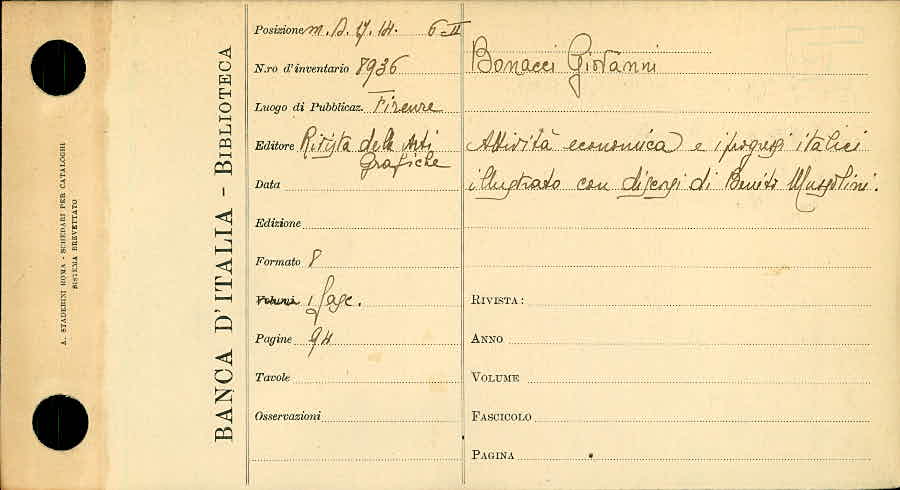 A. STADERINI ROMA - SCHEDARI PER CATALOGHI
SISTEMA BREVETTATO
BANCA D'ITALIA - BIBLIOTECA
Posizione m. D. 17. 14. 6-II
N.ro d'inventario 8936
Luogo di Pubblicaz. Firenze
Editore Rivista delle Arti
Grafiche
Data
Edizione
Formato 8
Volumi 1 fasc.
Pagine 94
Tavole
Osservazioni
Bonacci Giovanni
Attività economica e i progressi italici
illustrato con discorsi di Benito Mussolini.
RIVISTA:
ANNO
VOLUME
FASCICOLO
PAGINA